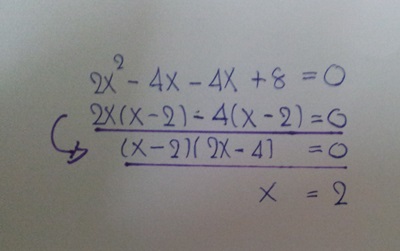 2x² - 4x - 4x + 8 = 0
2x(x-2) - 4(x-2) = 0
(x-2)(2x-4) = 0
x = 2